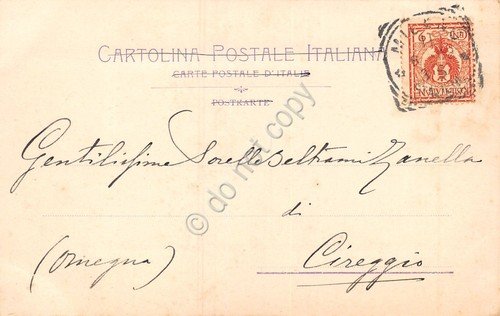 CARTOLINA POSTALE ITALIANA
CARTE POSTALE D'ITALIE
POSTKARTE
Gentilissime Sorelle Beltrami Zanella
di
(Omegna) Cireggio
© do not copy